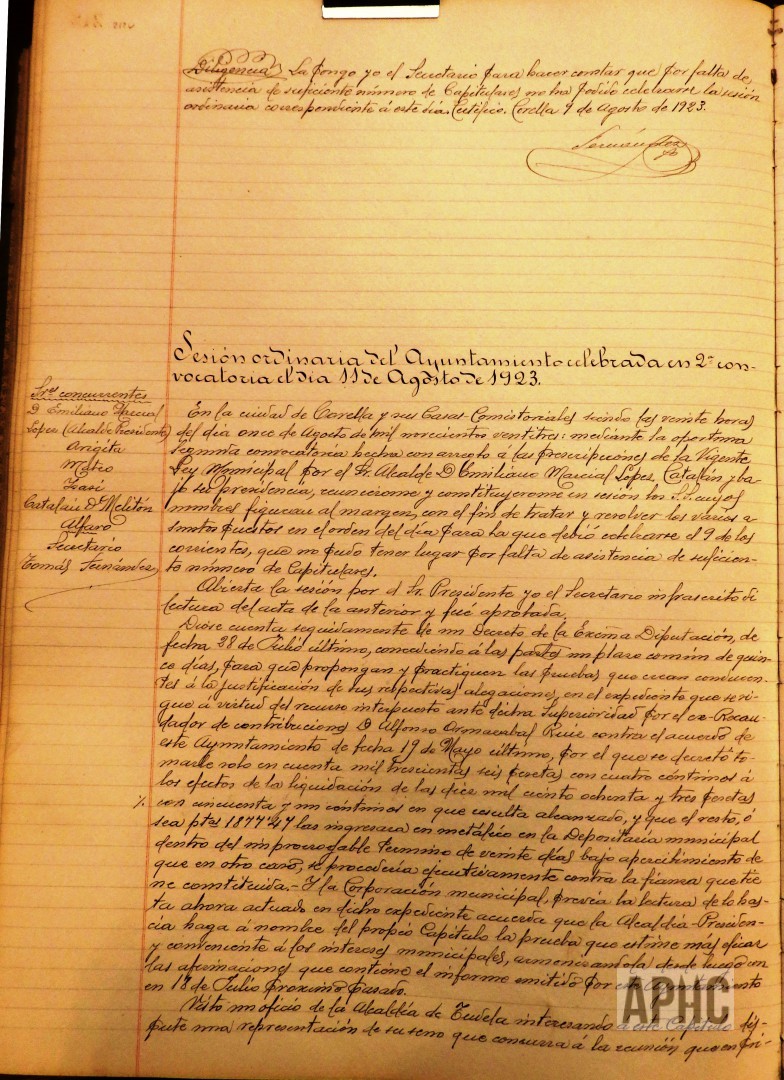 Diligencia La pongo yo el Secretario para hacer constar que por falta de
asistencia de suficiente número de Capitulares no ha podido celebrarse la sesión
ordinaria correspondiente á este día. Certifico. Corella 9 de Agosto de 1923.
Fernández
Sesión ordinaria del Ayuntamiento celebrada en 2ª con-
vocatoria el día 11 de Agosto de 1923.
Sres. concurrentes
D. Emiliano Marcial
López (Alcalde Presidente)
Arigita
Mateo
Isasi
Catalán D. Meletón
Alfaro
Secretario
Tomás Fernández
En la ciudad de Corella y sus Casas-Consistoriales siendo las veinte horas
del día once de Agosto de mil novecientos ventitres: mediante la oportuna
segunda convocatoria hecha con arreglo á las prescripciones de la Vigente
Ley Municipal por el Sr. Alcalde D. Emiliano Marcial López Catalán y ba-
jo su presidencia, reunieronse y constituyeronse en sesión los Sres. cuyos
nombres figuran al margen, con el fin de tratar y resolver los varios a-
suntos puestos en el orden del día para la que debió celebrarse el 9 de los
corrientes, que no pudo tener lugar por falta de asistencia de suficien-
te número de Capitulares.
Abierta la sesión por el Sr. Presidente yo el Secretario infrascrito di
lectura del acta de la anterior y fué aprobada.
Dióse cuenta seguidamente de un decreto de la Excma Diputación, de
fecha 28 de Julio último, concediendo á las partes un plazo común de quin-
ce días, para que propongan y practiquen las pruebas que crean conducen-
tes á la justificación de sus respectivas alegaciones, en el expediente que se si-
gue á virtud del recurso interpuesto ante dicha Superioridad por el ex-Recau-
dador de contribuciones D. Alfonso Ormazabal Ruiz contra el acuerdo de
este Ayuntamiento de fecha 19 de Mayo último, por el que se decretó to-
marle solo en cuenta mil trescientas seis pesetas con cuatro céntimos á
los efectos de la liquidación de las diez mil ciento ochenta y tres pesetas
con cincuenta y un céntimos en que resulta alcanzado, y que el resto, ó
sea ptas 1877'47 las ingresara en metálico en la Depositaría municipal
dentro del improrrogable término de veinte días bajo apercibimiento de
que en otro caso, se procedería ejecutivamente contra la fianza que tie-
ne constituida.- Y la Corporación municipal, previa la lectura de lo has-
ta ahora actuado en dicho expediente acuerda que la Alcaldía-Presiden-
cia haga á nombre del propio Capitulo la prueba que estime más eficaz
y conveniente á los intereses municipales, armonizandola desde luego con
las afirmaciones que contiene el informe emitido por este Ayuntamiento
en 13 de Julio próximo pasado.
Visto un oficio de la Alcaldía de Tudela interesando á este Capítulo dis-
pute una representación de su seno que concurra á la reunión que en pri-
APHC